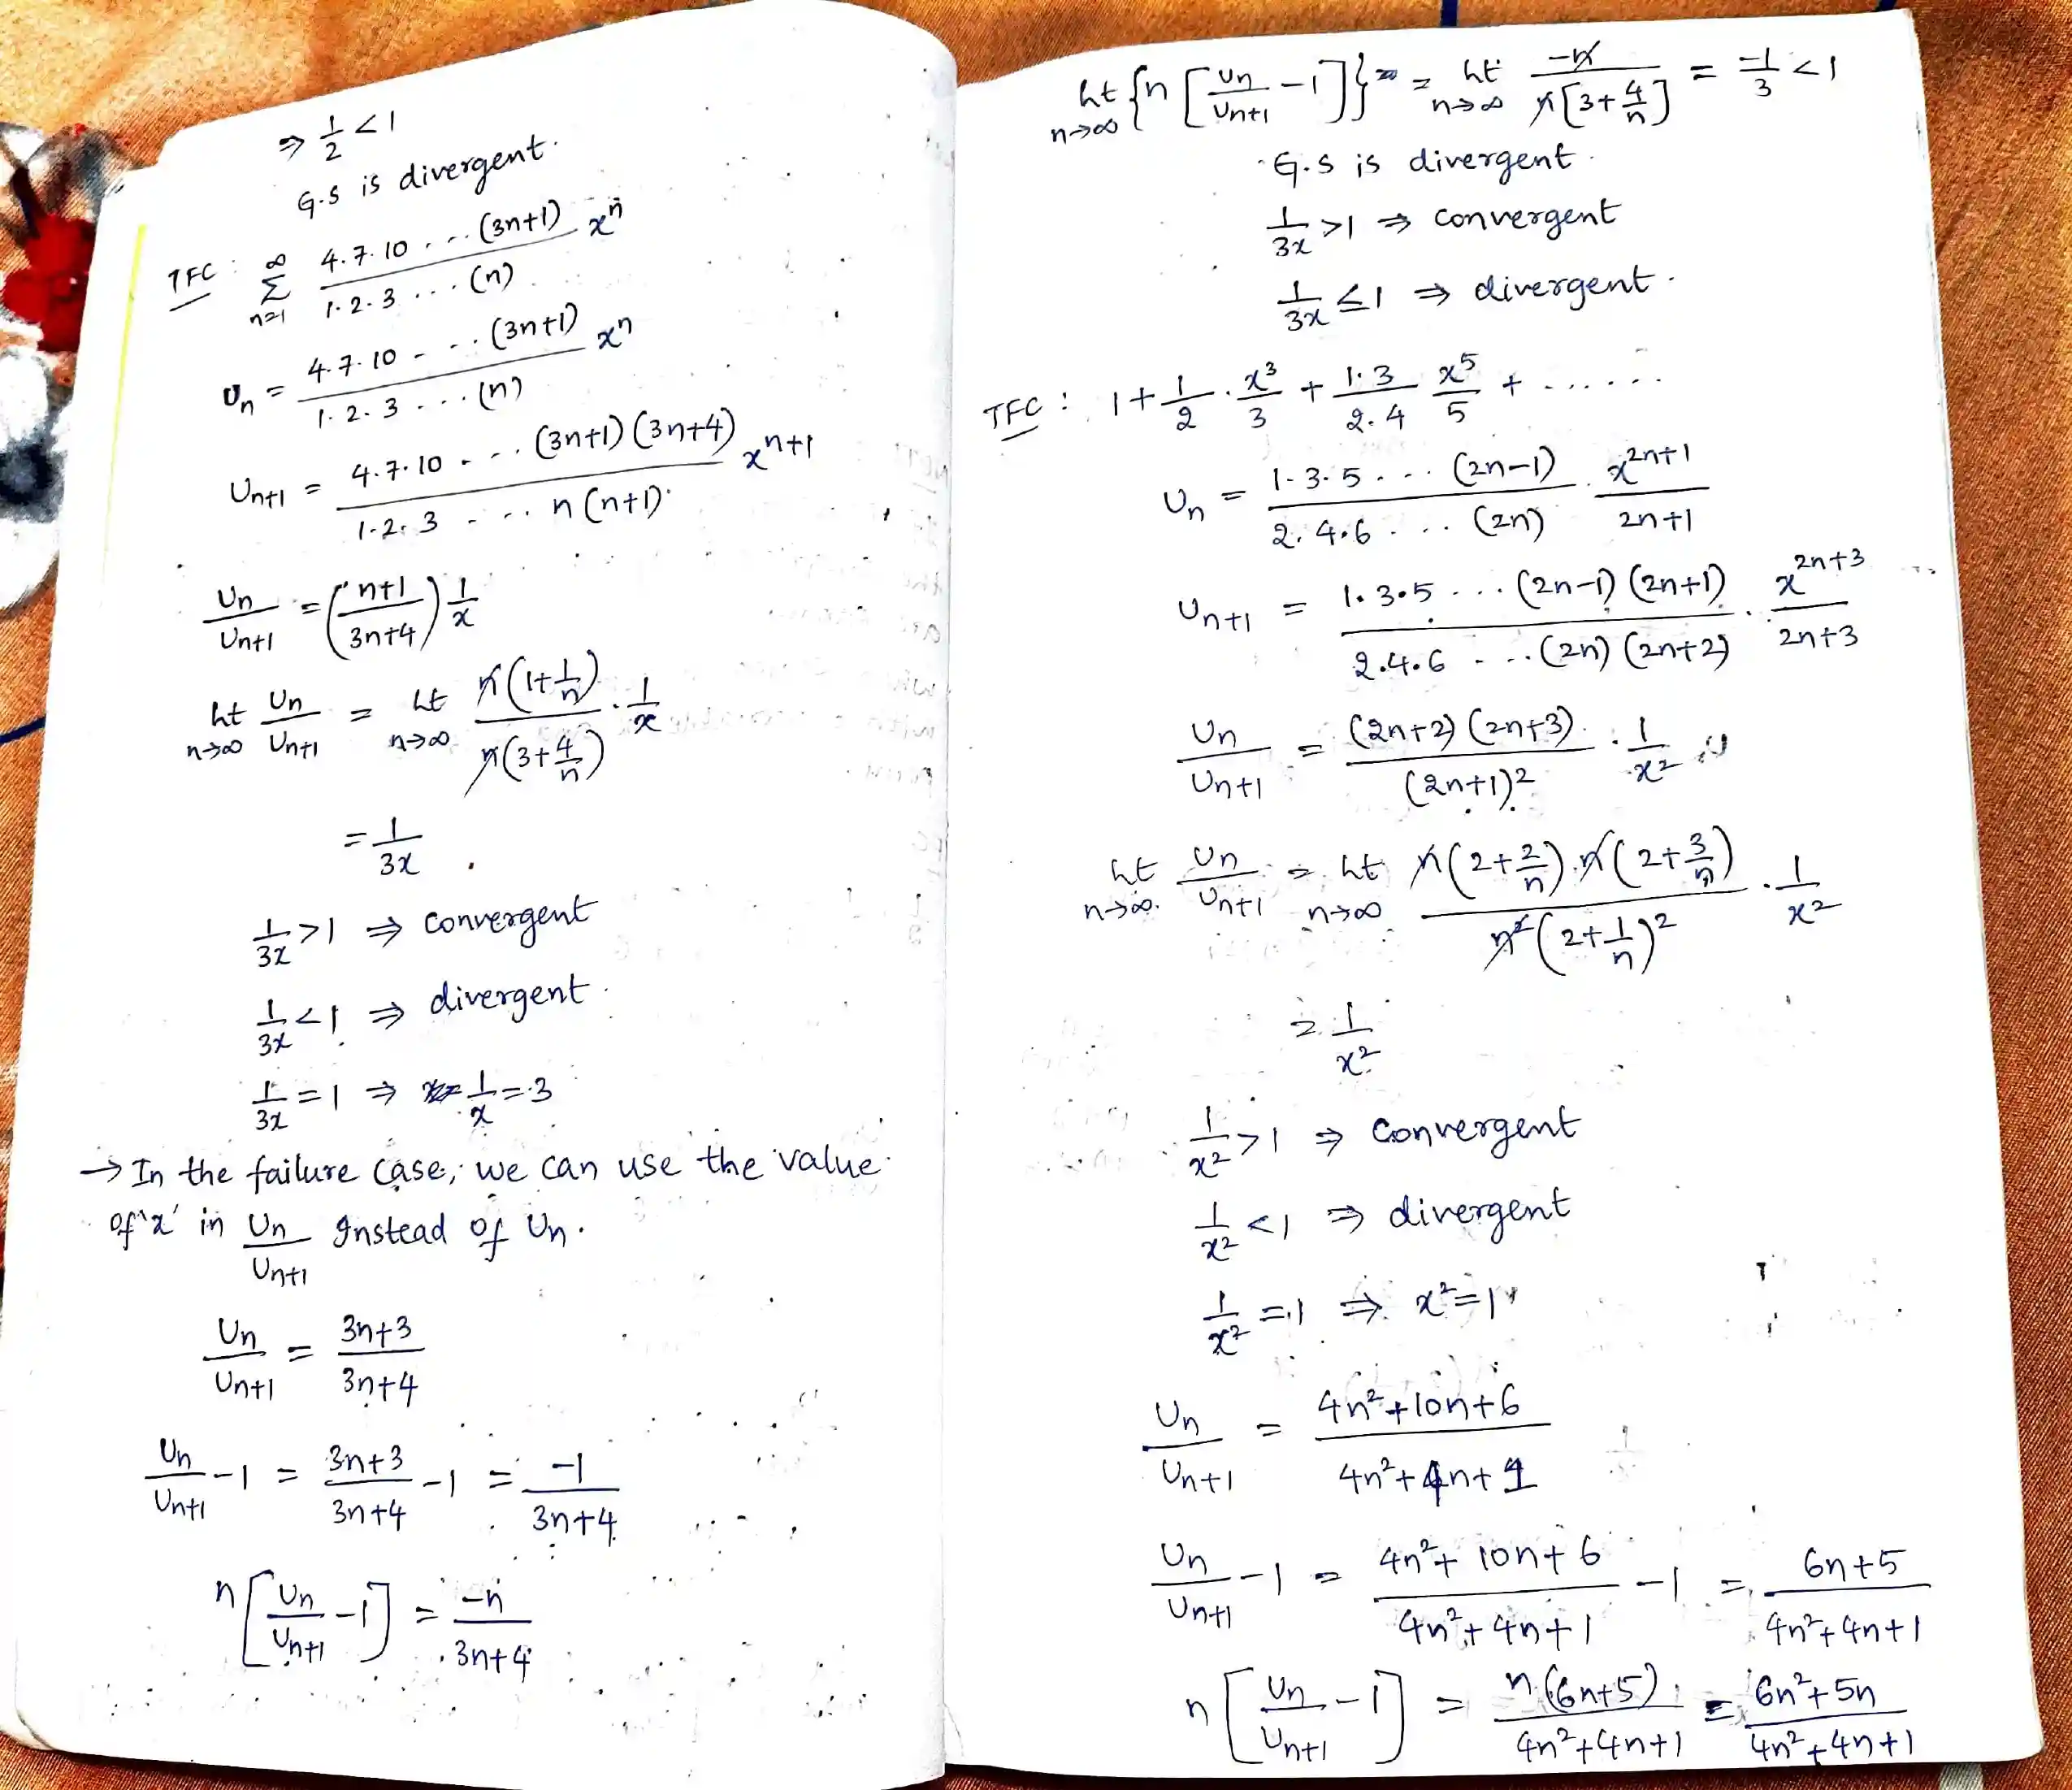 ⇒ 1/2 < 1
G.S is divergent.
TFC : ∞ Σ n=1 4.7.10 ... (3n+1) / 1.2.3 ... (n) x^n
Un = 4.7.10 - .. (3n+1) / 1.2.3 ... (n) x^n
Un+1 = 4.7.10 ... (3n+1) (3n+4) / 1.2.3 - .. n (n+1) x^n+1
Un / Un+1 = (n+1 / 3n+4) 1/x
Lt n→∞ Un / Un+1 = Lt n→∞ n(1+1/n) / n(3+4/n) . 1/x
= 1/3x
1/3x > 1 ⇒ convergent
1/3x < 1 ⇒ divergent.
1/3x = 1 ⇒ 1/x = 3
→ In the failure case, we can use the value
of 'x' in Un / Un+1 Instead of Un.
Un / Un+1 = 3n+3 / 3n+4
Un / Un+1 - 1 = 3n+3 / 3n+4 - 1 = -1 / 3n+4
n [Un / Un+1 - 1] = -n / 3n+4
Lt n→∞ {n [Un / Un+1 - 1]} = Lt n→∞ -n / n[3+4/n] = -1/3 < 1
G.S is divergent.
1/3x > 1 ⇒ convergent
1/3x ≤ 1 ⇒ divergent.
TFC : 1 + 1/2 . x^3/3 + 1.3/2.4 x^5/5 + ......
Un = 1.3.5 ... (2n-1) / 2.4.6 ... (2n) . x^2n+1 / 2n+1
Un+1 = 1.3.5 ... (2n-1) (2n+1) / 2.4.6 - .. (2n) (2n+2) . x^2n+3 / 2n+3
Un / Un+1 = (2n+2) (2n+3) / (2n+1)^2 . 1/x^2
Lt n→∞ Un / Un+1 = Lt n→∞ n(2+2/n) . n(2+3/n) / n^2(2+1/n)^2 . 1/x^2
= 1/x^2
1/x^2 > 1 ⇒ convergent
1/x^2 < 1 ⇒ divergent
1/x^2 = 1 ⇒ x^2 = 1
Un / Un+1 = 4n^2+10n+6 / 4n^2+4n+1
Un / Un+1 - 1 = 4n^2+10n+6 / 4n^2+4n+1 - 1 = 6n+5 / 4n^2+4n+1
n [Un / Un+1 - 1] = n(6n+5) / 4n^2+4n+1 = 6n^2+5n / 4n^2+4n+1